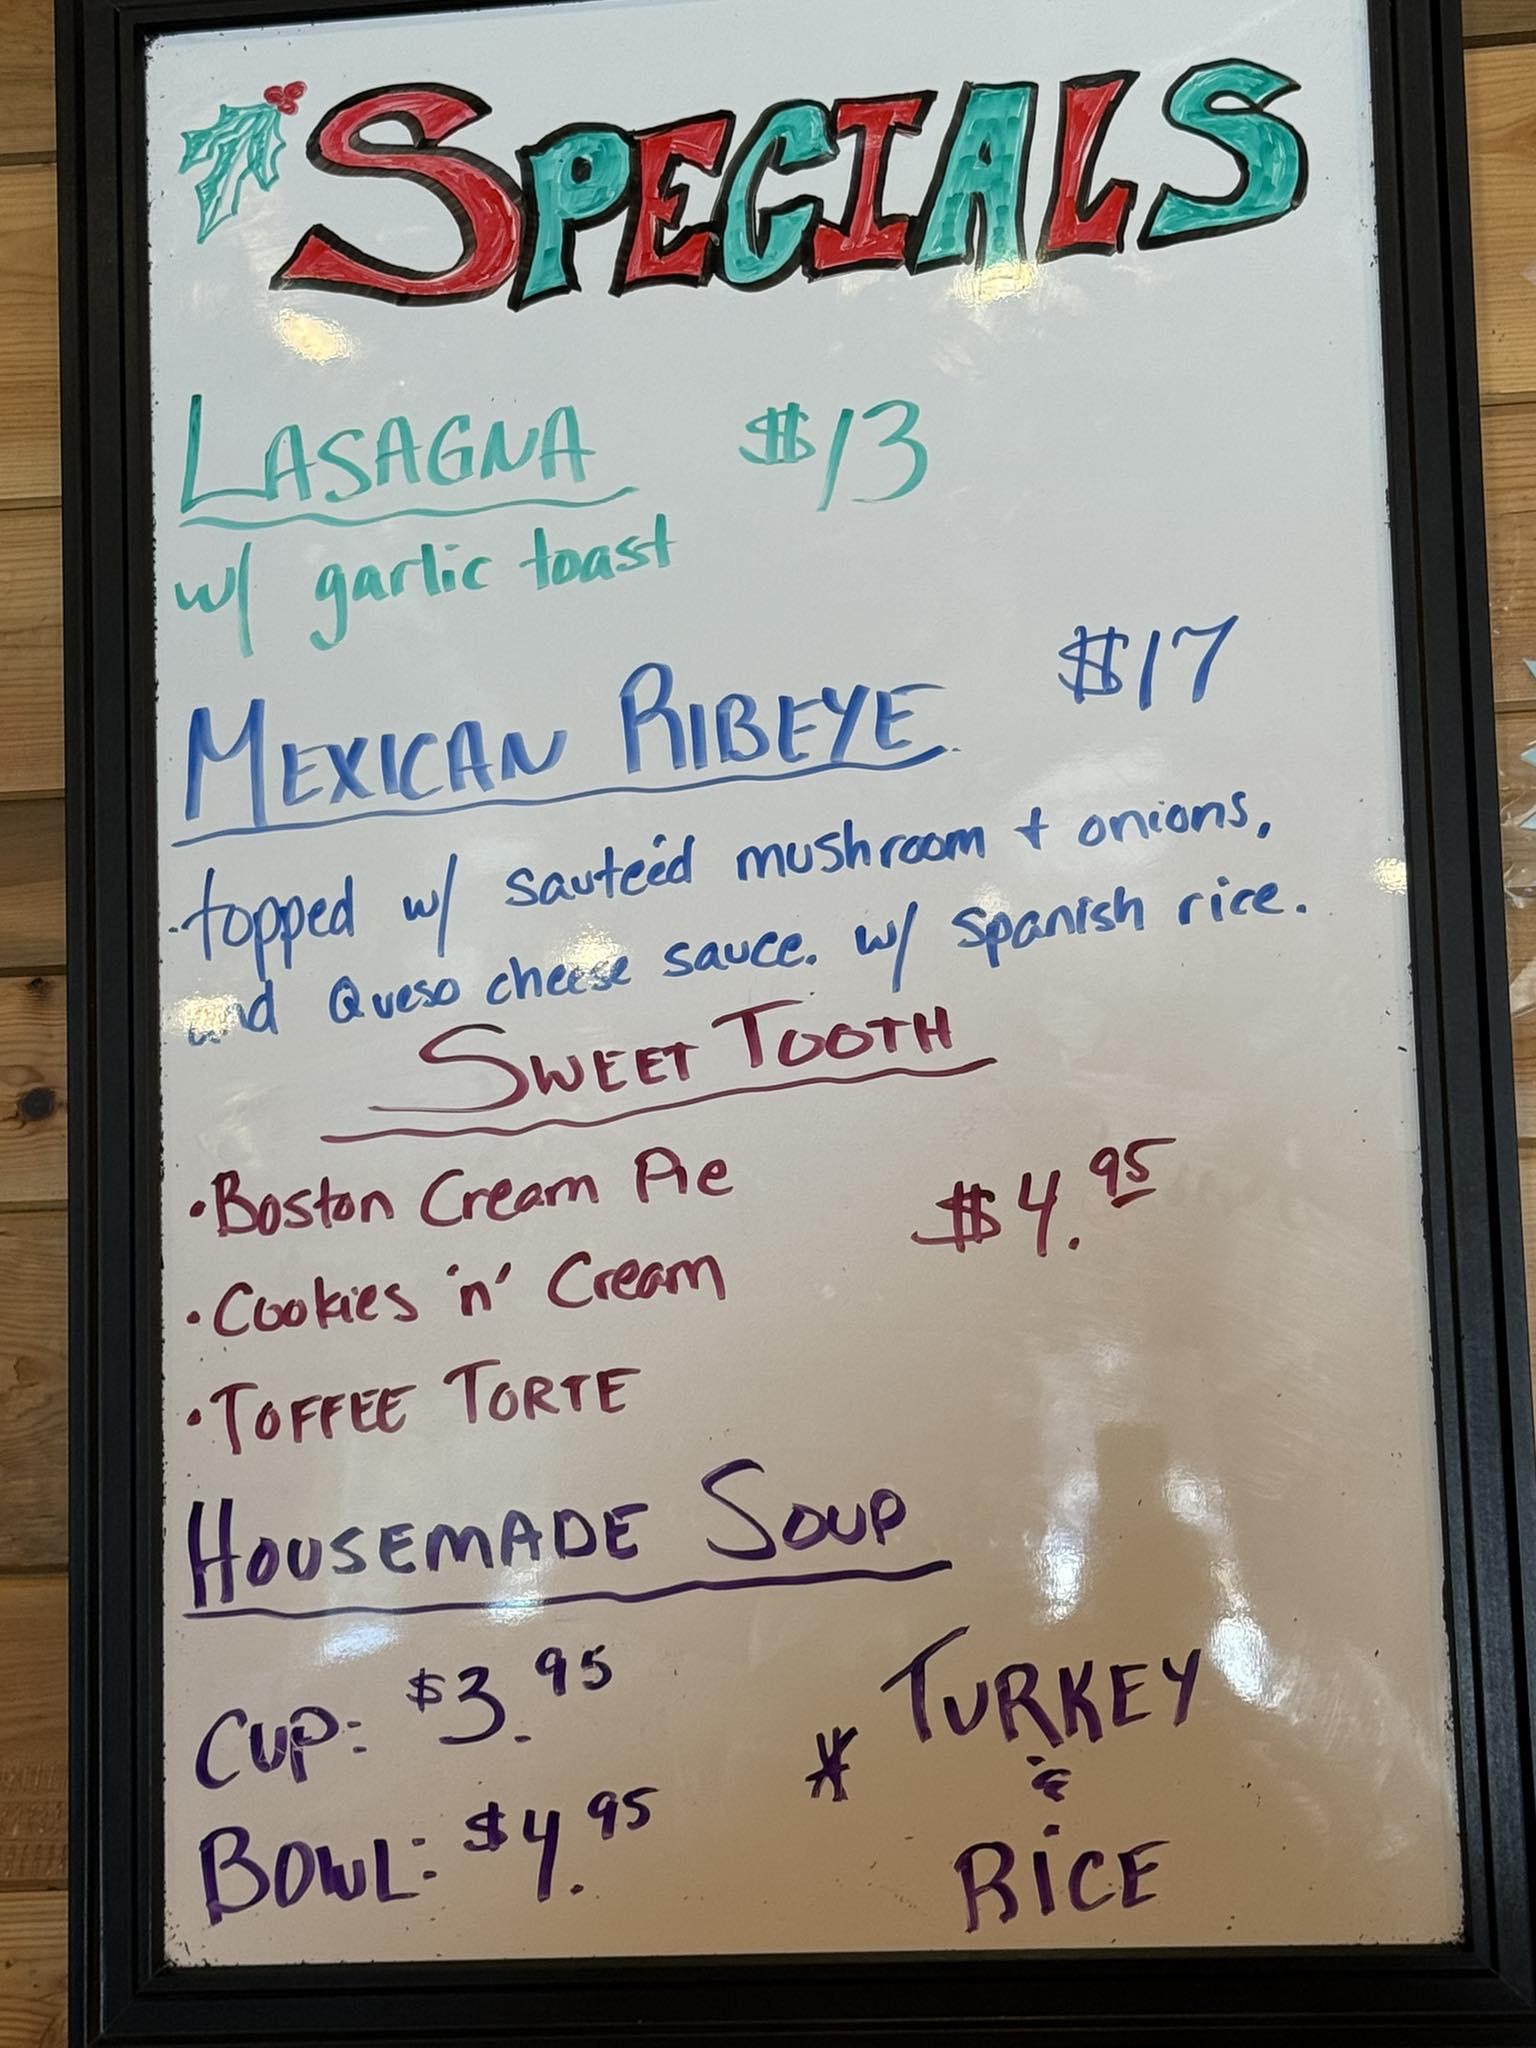 SPECIALS
LASAGNA $13
w/ garlic toast
MEXICAN RIBEYE $17
topped w/ sauteéd mushroom + onions,
and Queso cheese sauce. w/ spanish rice.
SWEET TOOTH
• Boston Cream Pie $4.95
• Cookies 'n' Cream
• TOFFEE TORTE
HOUSEMADE SOUP
CUP: $3.95
BOWL: $4.95
* TURKEY
&
RICE